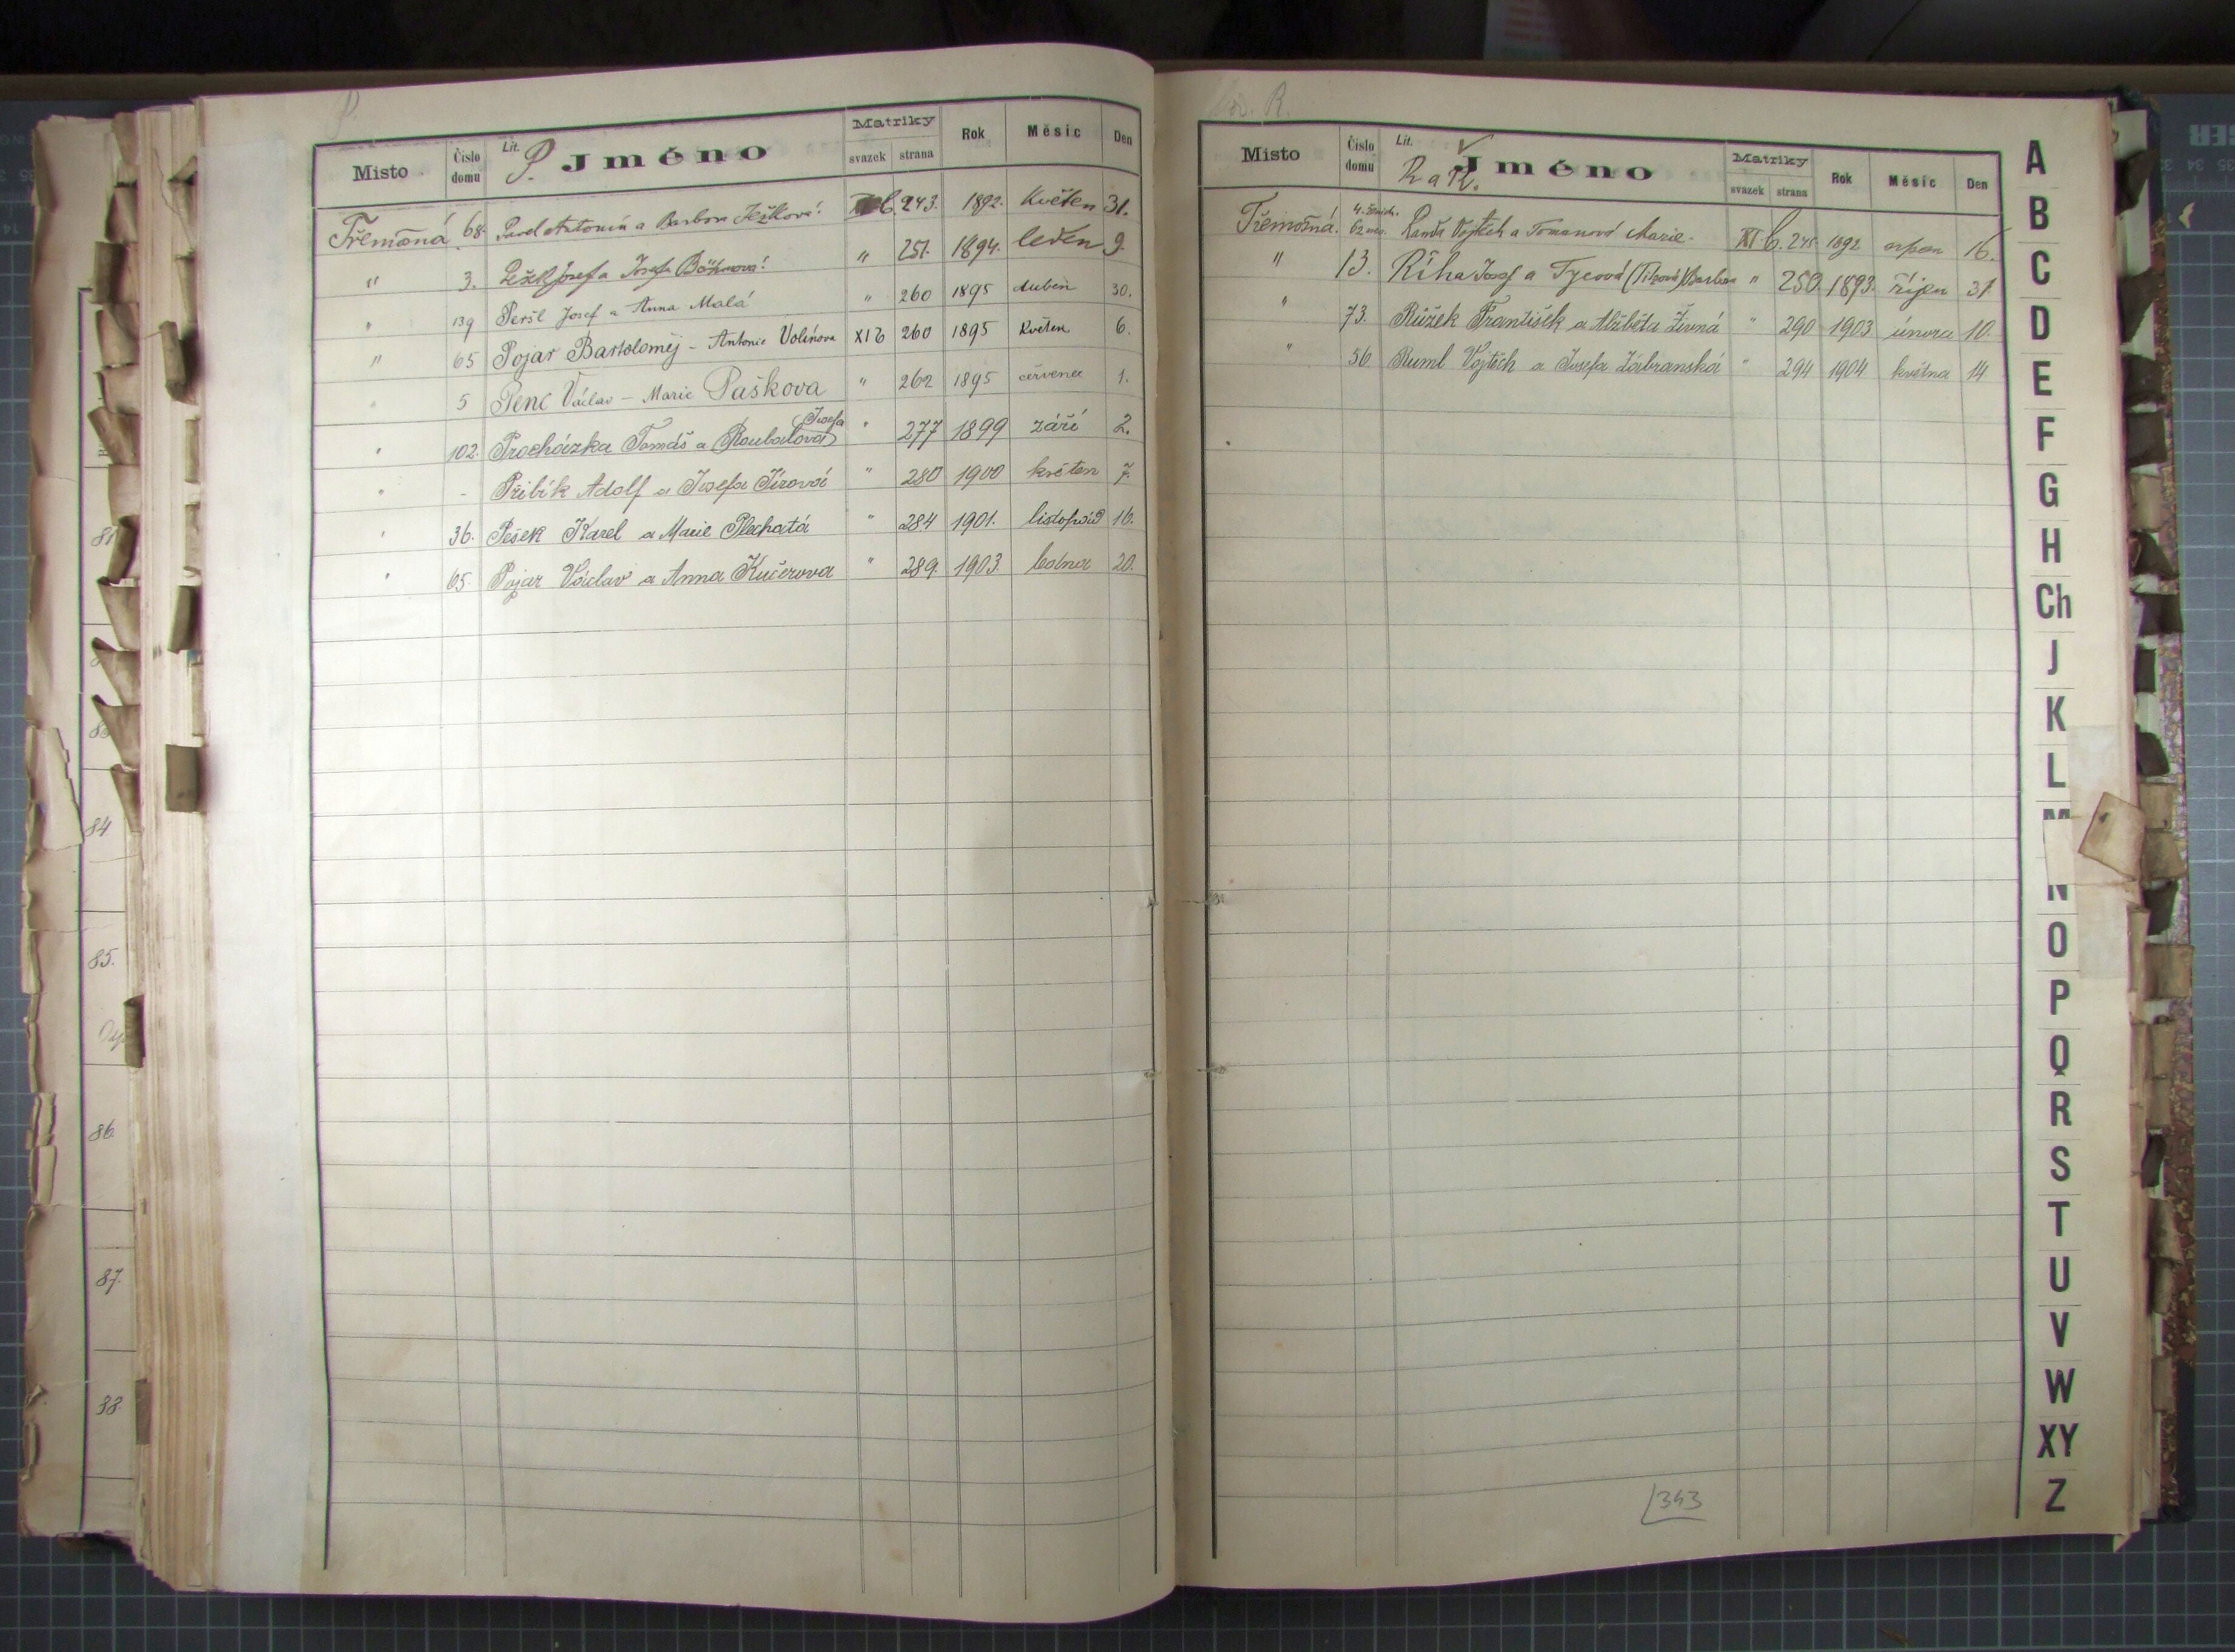 P.
Místo Číslo domu Lit. P. Jméno Matriky svazek strana Rok Měsíc Den
Třemošná 68. Pavel Antonín a Barbora Ježková. b. 243. 1892. Květen 31.
" 3. Josef a Josefa " 251. 1894. leden 9.
" 139 Peršl Josef a Anna Malá " 260 1895 duben 30.
" 65 Pojar Bartoloměj – Antonie Volínova XI b 260 1895 Květen 6.
" 5 Penc Václav – Marie Paškova " 262 1895 červenec 1.
" 102. Procházka Tomáš a Roubalová Josefa " 277 1899 září 2.
" - Přibík Adolf a Josefa Jírová " 280 1900 květen 7.
" 36. Pešek Karel a Marie Plechatá " 284 1901. listopad 16.
" 65 Pojar Václav a Anna Kučerova " 289. 1903. ledna 20.
R.
Místo Číslo domu Lit. R a Ř. Jméno Matriky svazek strana Rok Měsíc Den
Třemošná. Vojtěch a Tomanová Marie. XI b. 245 1892 srpen 16.
" 13. Říha Josef a Tycová Barbora " 250. 1893. říjen 31.
" 73. Růžek František a Alžběta Živná " 290 1903 února 10.
" 56 Ruml Vojtěch a Josefa Zábranská " 294 1904 května 14
343
A
B
C
D
E
F
G
H
Ch
J
K
L
M
N
O
P
Q
R
S
T
U
V
W
XY
Z
84.
85.
86.
87.
88.